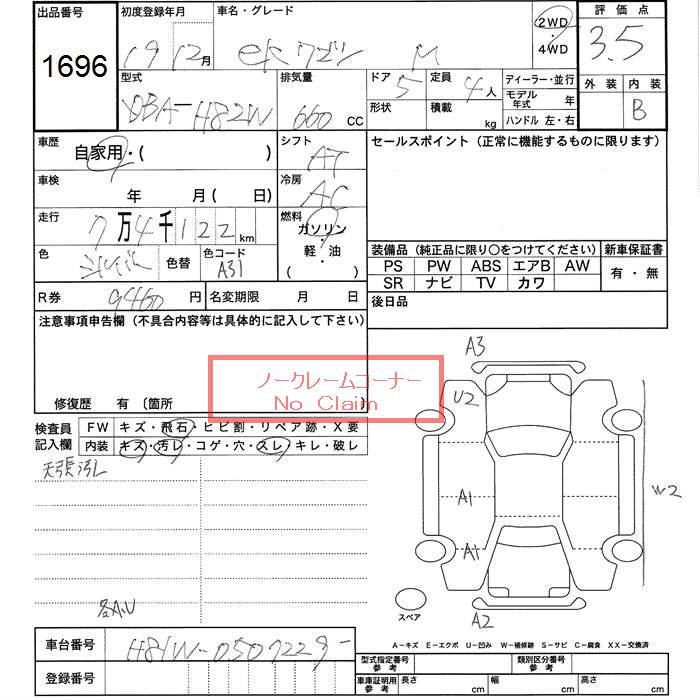 出品番号 初度登録年月 車名・グレード 2WD 評価点
1696 19 12月 ekワゴン M 4WD 3.5
型式 排気量 ドア 定員 ディーラー・並行 外装 内装
DBA-H82W 660 CC 5 4人 モデル年式 年 B
形状 積載 kg ハンドル 左・右
車歴 自家用・( ) シフト AT セールスポイント (正常に機能するものに限ります)
車検 年 月 ( 日) 冷房 AC
走行 7万4千122km 燃料 ガソリン
軽・油
( )
色 色替 色コード A31
装備品 (純正品に限り〇をつけてください) 新車保証書
PS PW ABS エアB AW 有・無
SR ナビ TV カワ
R券 9460円 名変期限 月 日 後日品
注意事項申告欄 (不具合内容等は具体的に記入して下さい)
ノークレームコーナー
No Claim
修復歴 有 〔箇所 〕
検査員記入欄 FW キズ・飛石・ヒビ割・リペア跡・X要
内装 キズ・汚レ・コゲ・穴・スレ・キレ・破レ
天張汚レ
各A.U
A3
U2
A1
W2
A1
スペア
A2
A-キズ E-エクボ U-凹み W-補修跡 S-サビ C-腐食 XX-交換済
車台番号 H81W-0507229-
登録番号
型式指定番号 参考 類別区分番号 参考
車庫証明用 参考 長さ cm 幅 cm 高さ cm